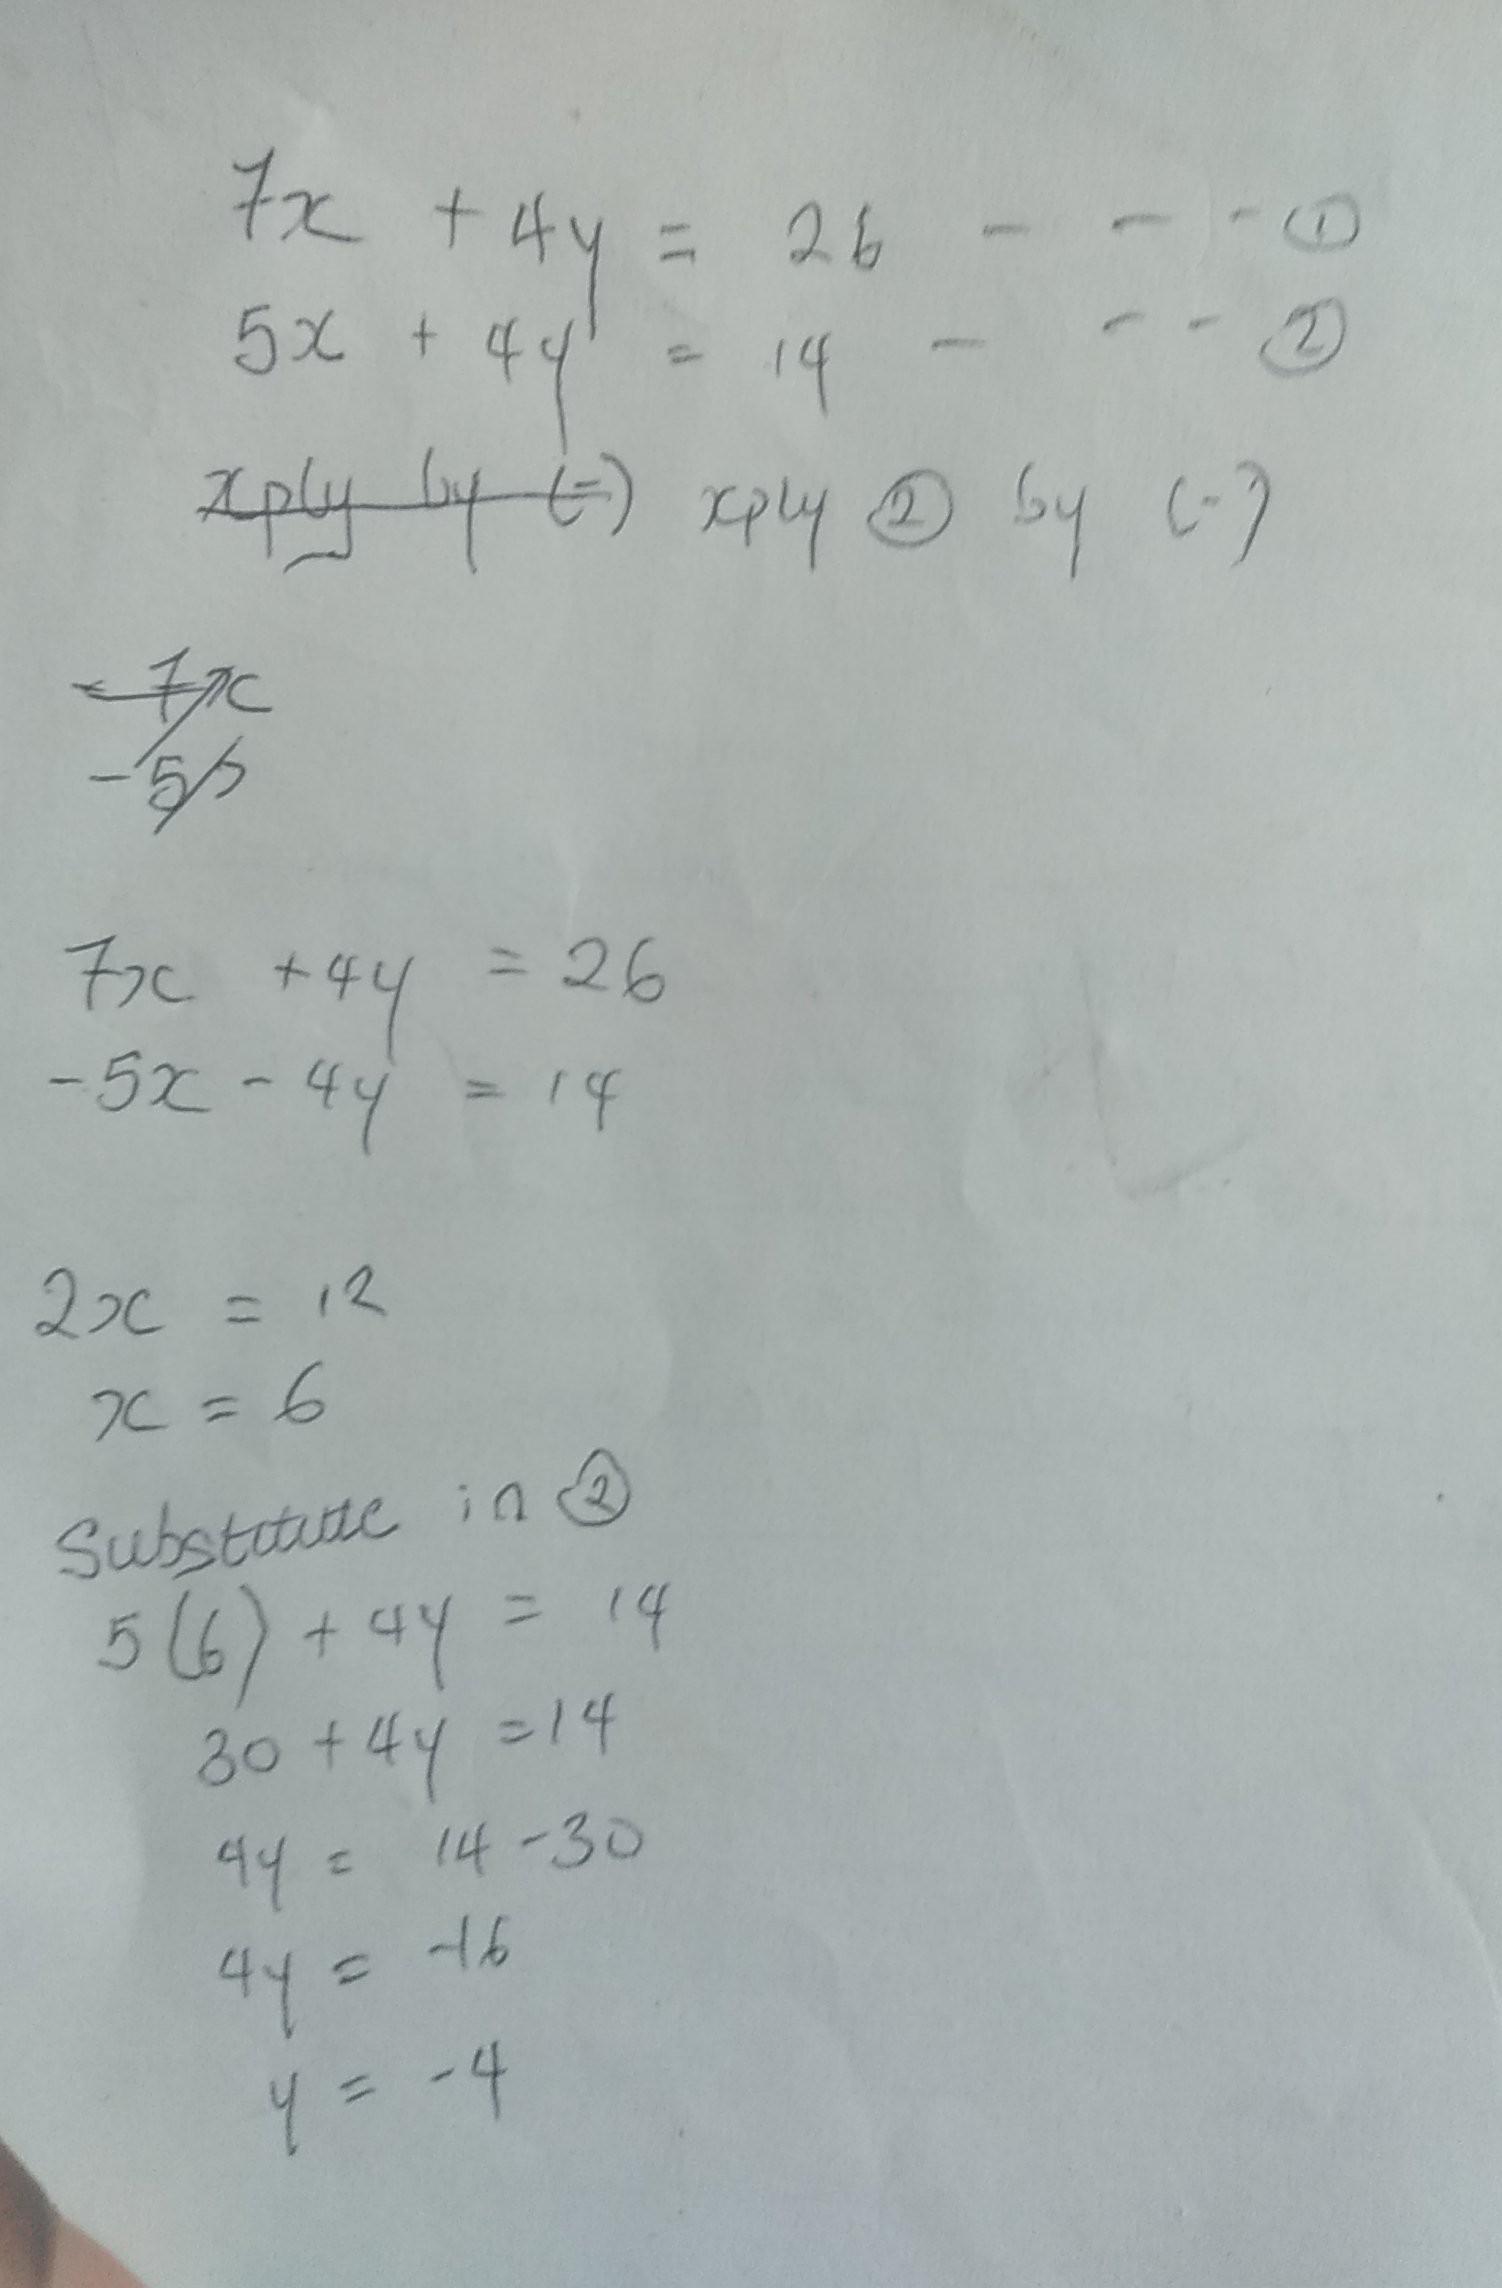 7x + 4y = 26 - - - ①
5x + 4y = 14 - - - ②
xply by (-) xply ② by (-)
- 7x
- 5
7x + 4y = 26
-5x - 4y = 14
2x = 12
x = 6
Substitute in ②
5(6) + 4y = 14
30 + 4y = 14
4y = 14 - 30
4y = -16
y = -4